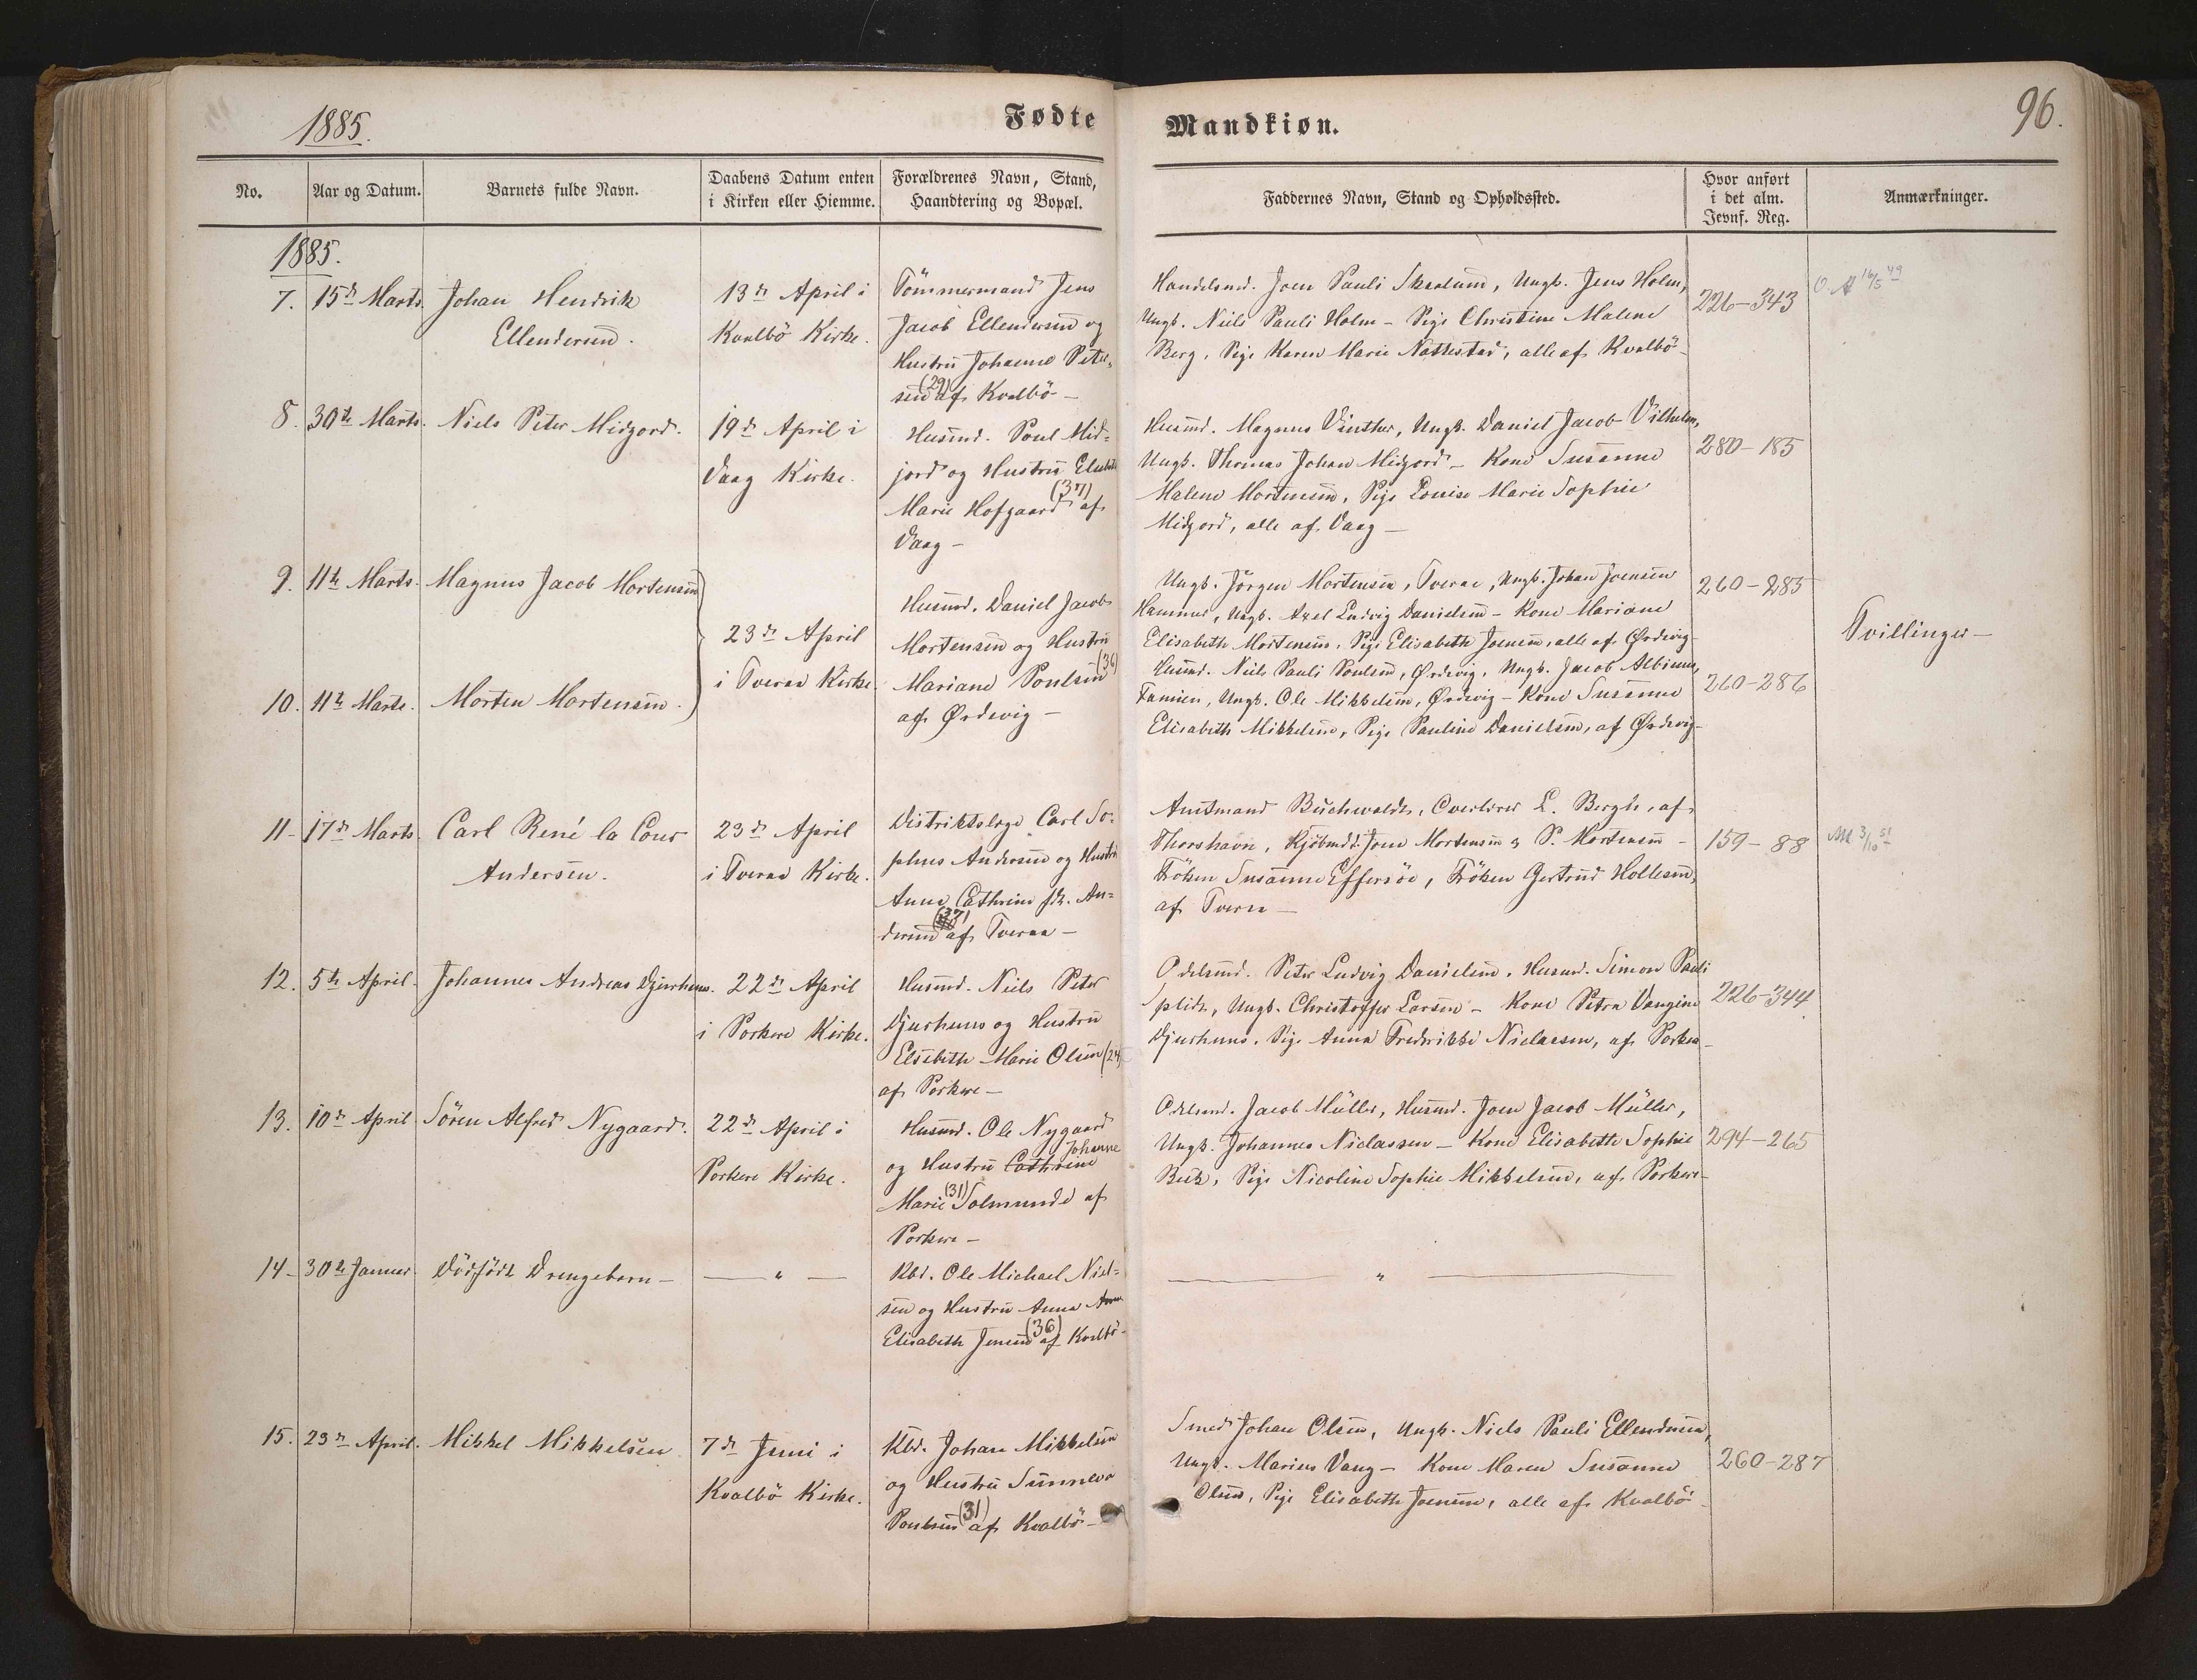 1885.
Fødte
Mandkiøn.
96.
No.
Aar og Datum.
Barnets fulde Navn.
Daabens Datum enten
i Kirken eller Hiemme.
Forældrenes Navn, Stand,
Haandtering og Bopæl.
Faddernes Navn, Stand og Opholdssted.
Hvor anført
i det alm.
Jevnf. Reg.
Anmærkninger.
1885.
7.
15de Marts.
Johan Hendrik
Ellendersen.
13de April i
Kvalbö Kirke.
Tömmermand Jens
Jacob Ellendersen og
Hustru Johanne Peter-
sen (29) af Kvalbö -
Handelsmd. Joen Pauli Skaalum, Ungk. Jens Holm,
Ungk. Niels Pauli Holm - Pige Christine Malene
Berg, Pige Karen Marie Nattestad, alle af Kvalbö -
226-343
O. A 16/5 49
8.
30te Marts.
Niels Peter Midjord.
19de April i
Vaag Kirke.
Husmd. Poul Mid-
jord og Hustru
Marie Hofgaard (37) af
Vaag -
Husmd. Magnus Vinther, Ungk. Daniel Jacob Vilhelm,
Ungk. Thomas Johan Midjord - Kone Susanne
Malene Mortensen, Pige Louise Marie Sophie
Midjord, alle af Vaag -
280-185
9.
11te Marts.
Magnus Jacob Mortensen
23de April
i Tveraa Kirke.
Husmd. Daniel Jacob
Mortensen og Hustru
Mariane Poulsen (36)
af Ørdevig -
Ungk. Jörgen Mortensen, Tveraa, Ungk. Johan Joensen
Hammer, Ungk. Axel Ludvig Danielsen - Kone Mariane
Elisabeth Mortensen, Pige Elisabeth Joensen, alle af Ørdevig -
260-285
Tvillinger -
10.
11te Marts.
Morten Mortensen.
Husmd. Niels Pauli Poulsen, Ørdevig, Ungk. Jacob Albinus,
Famien, Ungk. Ole Mikkelsen, Ørdevig - Kone Susanne
Elisabeth Mikkelsen, Pige Pauline Danielsen, af Ørdevig -
260-286
11 -
17de Marts.
Carl René la Cour
Andersen.
23de April
i Tveraa Kirke.
Distriktslæge Carl So-
phus Andersen og Hustru
Anna Cathrine fdt. An-
dersen (37) af Tveraa -
Amtmand Buchwaldt, Overlærer L. Bergh, af
Thorshavn, Kjöbmdd. Joen Mortensen & P. Mortensen -
Fröken Susanne Effersöe, Fröken Gertrud Hollesen,
af Tveraa -
159-88
AM 3/10 51
12.
5te April.
Johannes Andreas Djurhuus.
22de April
i Porkere Kirke.
Husmd. Niels Peter
Djurhuus og Hustru
Elsebeth Marie Olsen (24)
af Porkere -
Odelsmd. Peter Ludvig Danielsen, Husmd. Simon Pauli
Splidt, Ungk. Christoffer Larsen - Kone Petra Vangine
Djurhuus, Pige Anna Frederikke Niclassen, af Porkere -
226-344
13.
10de April
Sören Alfred Nygaard.
22de April i
Porkere Kirke.
Husmd. Ole Nygaard
Johanne
og Hustru Cathrine
Marie (31) Solmunde af
Porkere -
Odelsmd. Jacob Müller, Husmd. Joen Jacob Müller,
Ungk. Johannes Niclassen - Kone Elisabeth Sophie
Beck, Pige Nicoline Sophie Mikkelsen, af Porkere -
294-265
14 -
30te Januar.
Dödfödt Drengebarn -
— " —
Kbd. Ole Michael Niel-
sen og Hustru Anna
Elisabeth Jensen (36) af Kvalbö -
— " —
15.
23de April.
Mikkel Mikkelsen
7de Juni i
Kvalbö Kirke.
Kbd. Johan Mikkelsen
og Hustru Sunneva
Poulsen (31) af Kvalbö -
Smed Johan Olsen, Ungk. Niels Pauli Ellendersen,
Ungk. Marius Vang - Kone Maren Susanne
Olsen, Pige Elisabeth Joensen, alle af Kvalbö -
260-287